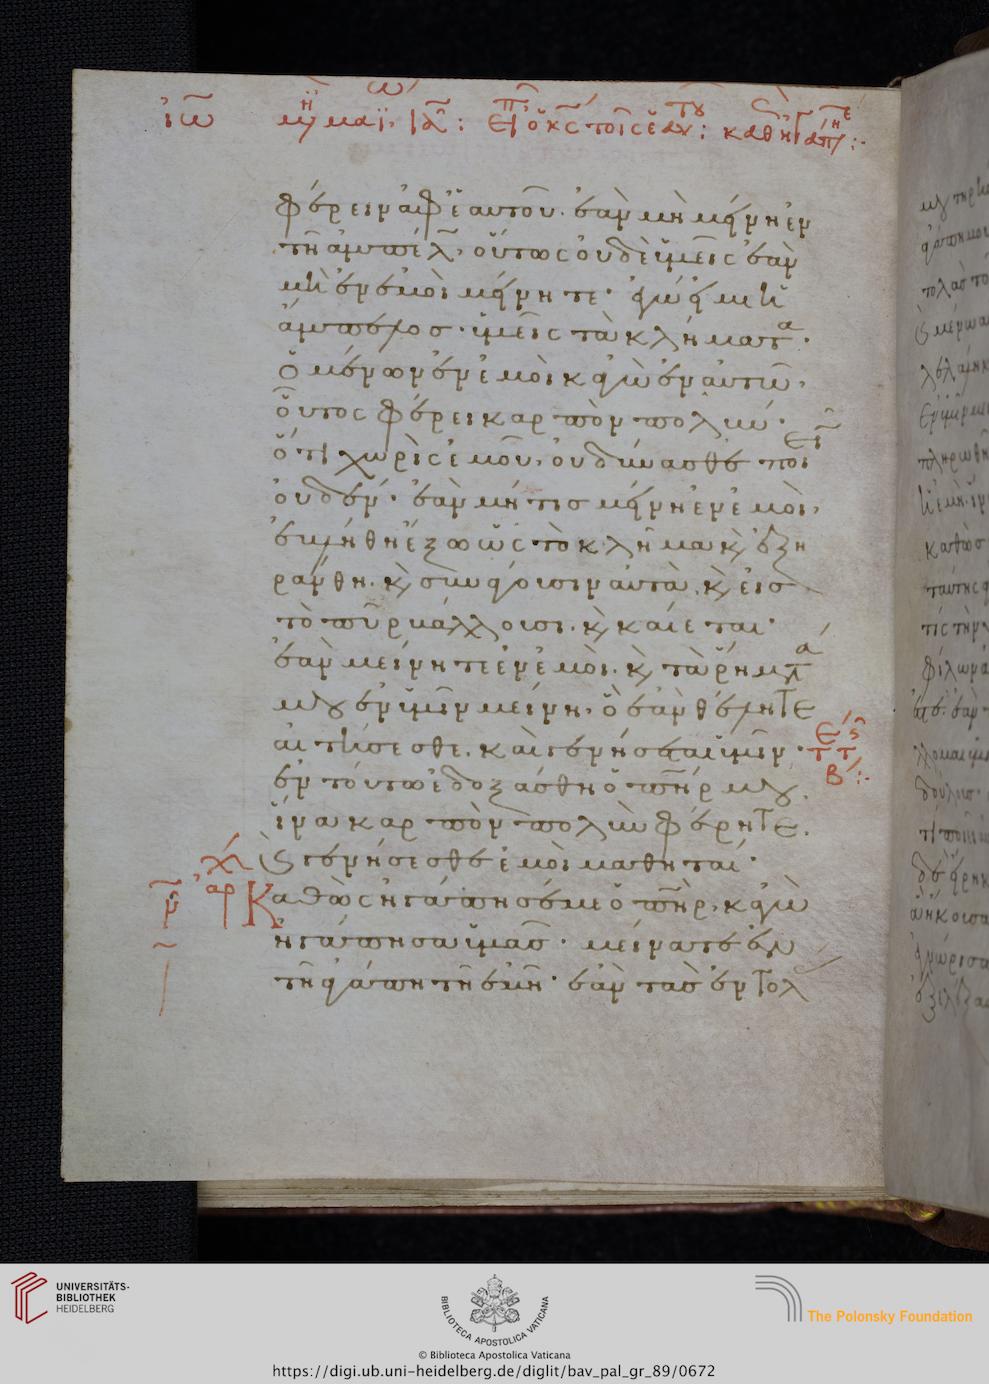 ἰω μη μαϊ ια : ει ο κς τοις ε αυ : καθη γαπη
φέρειν ἀφ ἑαυτοῦ. ἐὰν μὴ μείνη ἐν
τῆ ἀμπέλ, οὕτως οὐδὲ ὑμεῖς ἐὰν
μὴ ἐν ἐμοὶ μείνητε· ἐγώ εἰμι ἡ
ἄμπελοσ· ὑμεῖς τὰ κλήματα·
ὁ μένων ἐν ἐμοὶ κἀγὼ ἐν αὐτῶ,
οὗτος φέρει καρπὸν πολύν·
ὅτι χωρὶς ἐμοῦ, οὐ δύνασθε ποιεῖ
οὐδέν· ἐὰν μή τισ μείνη ἐν ἐμοὶ,
ἐβλήθη ἔξω ὡς τὸ κλῆμα κ ἐξη
ράνθη. κ συνάγουσιν αὐτὰ. κ εἰσ
τὸ πῦρ βάλλουσι. κ καίεται·
ἐὰν μείνητε ἐν ἐμοὶ. κ τὰ ῥήματα
μου ἐν ὑμῖν μείνη, ὃ ἐὰν θέλητε
αἰτήσεσθε. καὶ γενήσεται ὑμῖν·
ἐν τούτω ἐδοξάσθη ὁ πηρ μου.
ἵνα καρπὸν πολὺν φέρητε.
κ γενήσεσθε ἐμοὶ μαθηταί·
αρ Καθὼς ἠγάπησέ με ὁ πηρ, κἀγὼ
ἠγάπησα ὑμασ· μείνατε ἐν
τῆ ἀγάπη τῆ ἐμῆ· ἐὰν τασ ἐντολ
UNIVERSITÄTS-
BIBLIOTHEK
HEIDELBERG
BIBLIOTECA APOSTOLICA VATICANA
The Polonsky Foundation
© Biblioteca Apostolica Vaticana
https://digi.ub.uni-heidelberg.de/diglit/bav_pal_gr_89/0672